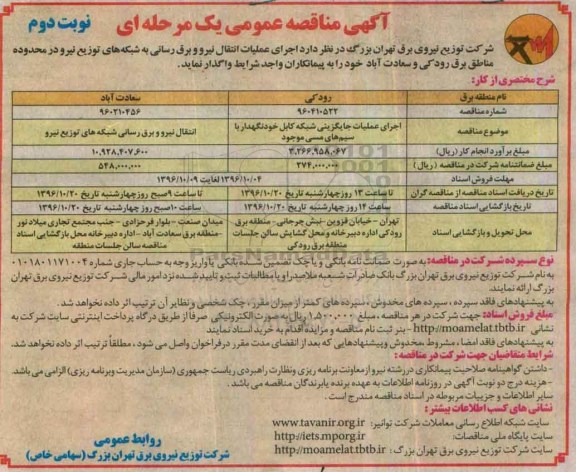 آگهی مناقصه عمومی یک مرحله ای
نوبت دوم
شرکت توزیع نیروی برق تهران بزرگ در نظر دارد اجرای عملیات انتقال نیرو و برق رسانی به شبکه‌های توزیع نیرو در محدوده
مناطق برق رودکی و سعادت آباد خود را به پیمانکاران واجد شرایط واگذار نماید.
شرح مختصری از کار:
نام منطقه برق رودکی سعادت آباد
شماره مناقصه ۹۶۰۴۱۰۵۲۲ ۹۶۰۲۱۰۴۵۶
موضوع مناقصه اجرای عملیات جایگزینی شبکه کابل خودنگهدار با سیم‌های مسی موجود انتقال نیرو و برق رسانی شبکه های توزیع نیرو
مبلغ برآورد انجام کار (ریال) ۳,۲۶۶,۹۵۸,۰۶۷ ۱۰,۹۲۸,۴۰۷,۶۰۰
مبلغ ضمانتنامه شرکت در مناقصه (ریال) ۲۷۴,۰۰۰,۰۰۰ ۵۴۸,۰۰۰,۰۰۰
مهلت فروش اسناد ۱۳۹۶/۱۰/۰۴ لغایت ۱۳۹۶/۱۰/۰۹
تاریخ دریافت اسناد مناقصه از مناقصه گران تا ساعت ۱۳ روز چهارشنبه تاریخ ۱۳۹۶/۱۰/۲۰ تا ساعت ۹ صبح روز چهارشنبه تاریخ ۱۳۹۶/۱۰/۲۰
تاریخ بازگشایی اسناد مناقصه ساعت ۱۴ روز چهارشنبه تاریخ ۱۳۹۶/۱۰/۲۰ ساعت ۱۰ صبح روز چهارشنبه تاریخ ۱۳۹۶/۱۰/۲۰
محل تحویل و بازگشایی اسناد تهران - خیابان قزوین - نبش چرحانی - منطقه برق رودکی اداره دبیرخانه و محل گشایش سالن جلسات منطقه برق رودکی میدان صنعت - بلوار فرحزادی - جنب مجتمع تجاری میلاد نور - منطقه برق سعادت آباد - اداره دبیرخانه محل بازگشایی اسناد مناقصه سالن جلسات منطقه
نوع سپرده شرکت در مناقصه: به صورت ضمانت نامه بانکی و یا چک تضمین شده بانکی یا واریز وجه به حساب جاری شماره ۰۱۰۱۸۰۱۱۷۱۰۰۴
به نام شرکت توزیع نیروی برق تهران بزرگ بانک صادرات شعبه ملاصدرا و یا مطالبات ثبت و تایید شده نزد امور مالی شرکت توزیع نیروی برق تهران
بزرگ ارائه نمایند.
به پیشنهادهای فاقد سپرده، سپرده های مخدوش، سپرده های کمتر از میزان مقرر، چک شخصی و نظایر آن ترتیب اثر داده نخواهد شد.
مبلغ فروش اسناد: جهت شرکت در هر مناقصه، مبلغ ۱,۵۰۰,۰۰۰ ریال به صورت الکترونیکی صرفا از طریق درگاه پرداخت اینترنتی سایت شرکت به
نشانی http://moamelat.tbtb.ir - بنر ثبت نام مناقصه و مزایده اقدام به خرید اسناد نمایند
به پیشنهادهای فاقد امضاء، مشروط، مخدوش و پیشنهادهایی که بعد از انقضای مدت مقرر در فراخوان واصل می شود، مطلقاً ترتیب اثر داده نخواهد شد.
شرایط متقاضیان جهت شرکت در مناقصه:
- داشتن گواهینامه صلاحیت پیمانکاری در رشته نیرو از معاونت برنامه ریزی ونظارت راهبردی ریاست جمهوری (سازمان مدیریت وبرنامه ریزی) الزامی می باشد.
- هزینه درج دو نوبت آگهی در روزنامه اطلاعات به عهده برنده یا برندگان مناقصه می باشد.
سایر اطلاعات و جزییات مربوطه در اسناد مناقصه مندرج است.
نشانی های کسب اطلاعات بیشتر:
سایت شبکه اطلاع رسانی معاملات شرکت توانیر: www.tavanir.org.ir
سایت پایگاه ملی مناقصات: http://iets.mporg.ir
سایت شرکت توزیع نیروی برق تهران بزرگ: http://moamelat.tbtb.ir
روابط عمومی
شرکت توزیع نیروی برق تهران بزرگ (سهامی خاص)